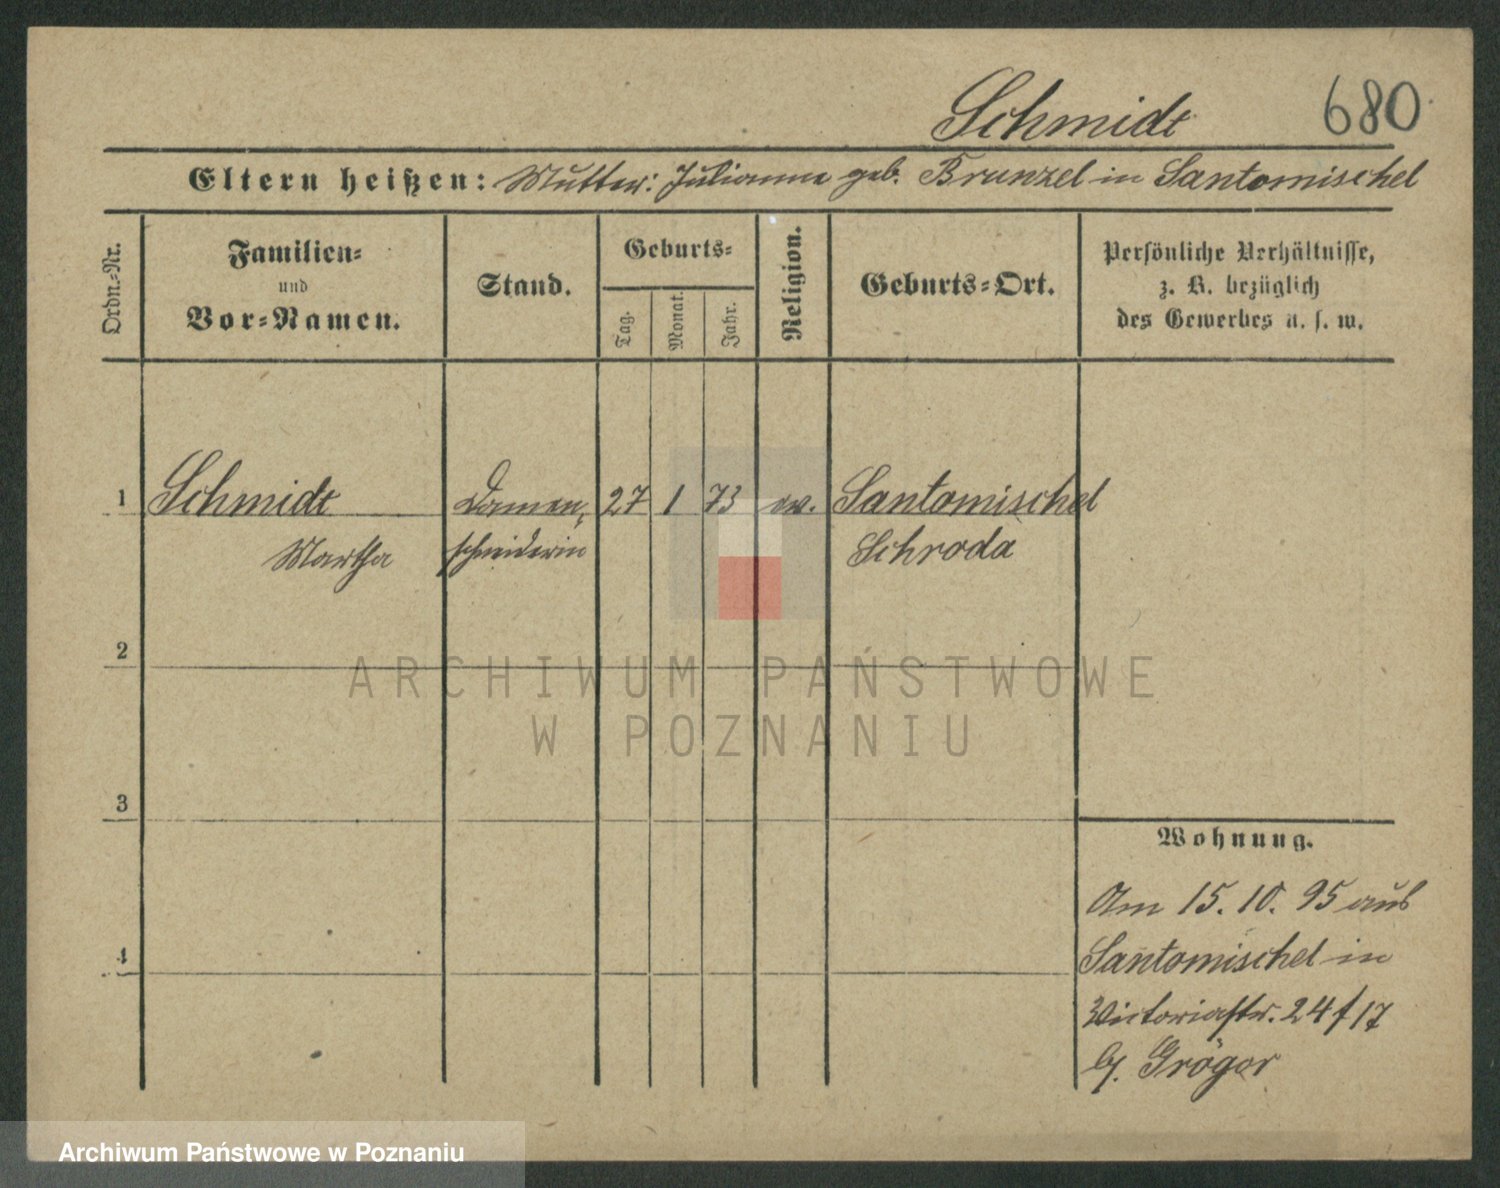 Schmidt 680
Eltern heißen: Mutter: Julianna geb. Brunzel in Santomischel
Ordn.-Nr.
Familien-
und
Vor-Namen.
Stand.
Geburts-
Tag.
Monat.
Jahr.
Religion.
Geburts-Ort.
Persönliche Verhältnisse,
z. B. bezüglich
des Gewerbes u. s. w.
1 Schmidt Damen- 27 1 73 ev. Santomischel
Martha schneiderin Schroda
2
ARCHIWUM PAŃSTWOWE
W POZNANIU
3
Wohnung.
4
Am 15.10.95 aus
Santomischel in
Victoriastr. 24 / 17
b/. Grögor
Archiwum Państwowe w Poznaniu